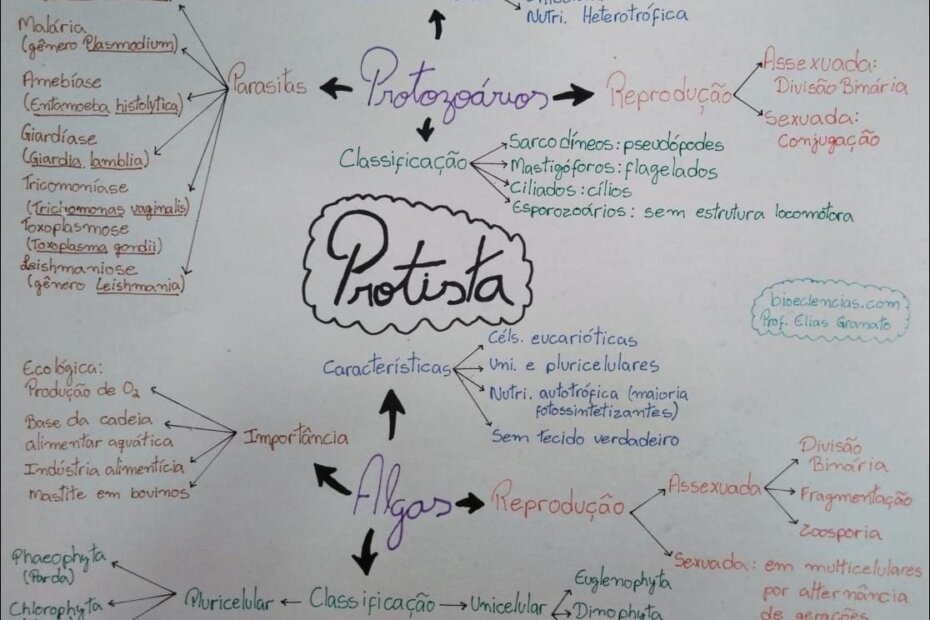 Nutri. Heterotrófica
Malária
(gênero Plasmodium)
Amebíase
(Entamoeba histolytica)
Giardíase
(Giardia lamblia)
Tricomoníase
(Trichomonas vaginalis)
Toxoplasmose
(Toxoplasma gondii)
Leishmaniose
(gênero Leishmania)
Parasitas
Protozoários
Reprodução
Assexuada:
Divisão Binária
Sexuada:
Conjugação
Classificação
Sarcodíneos: pseudópodes
Mastigóforos: flagelados
Ciliados: cílios
Esporozoários: sem estrutura locomotora
Protista
bioeciencias.com
Prof. Elias Gramato
Características
Céls. eucarióticas
Uni. e pluricelulares
Nutri. autotrófica (maioria
fotossintetizantes)
Sem tecido verdadeiro
Ecológica:
Produção de O₂
Base da cadeia
alimentar aquática
Indústria alimentícia
Mastite em bovinos
Importância
Algas
Reprodução
Assexuada
Divisão
Binária
Fragmentação
Zoosporia
Sexuada: em multicelulares
por alternância
de gerações
Classificação
Pluricelular
Phaeophyta
(Parda)
Chlorophyta
Unicelular
Euglenophyta
Dinophyta